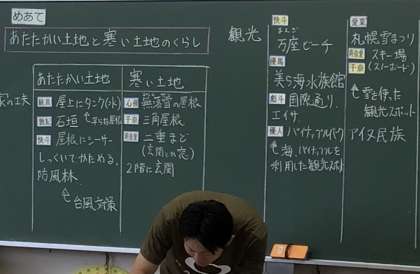 めあて
あたたかい土地と寒い土地のくらし
あたたかい土地
屋上にタンク(水)
石垣
屋根にシーサー
しっくいでかためる。
防風林。
台風対策
寒い土地
無落雪の屋根
三角屋根
二重まど
(玄関にも窓)
2階に玄関
観光
快斗
万座ビーチ
優馬
美ら海水族館
国際通り。
エイサー
優人
パイナップルパーク
海、パイナップルを
利用した観光スポット
愛菜
札幌雪まつり
スキー場
(スノーボード)
雪を使った
観光スポット
アイヌ民族